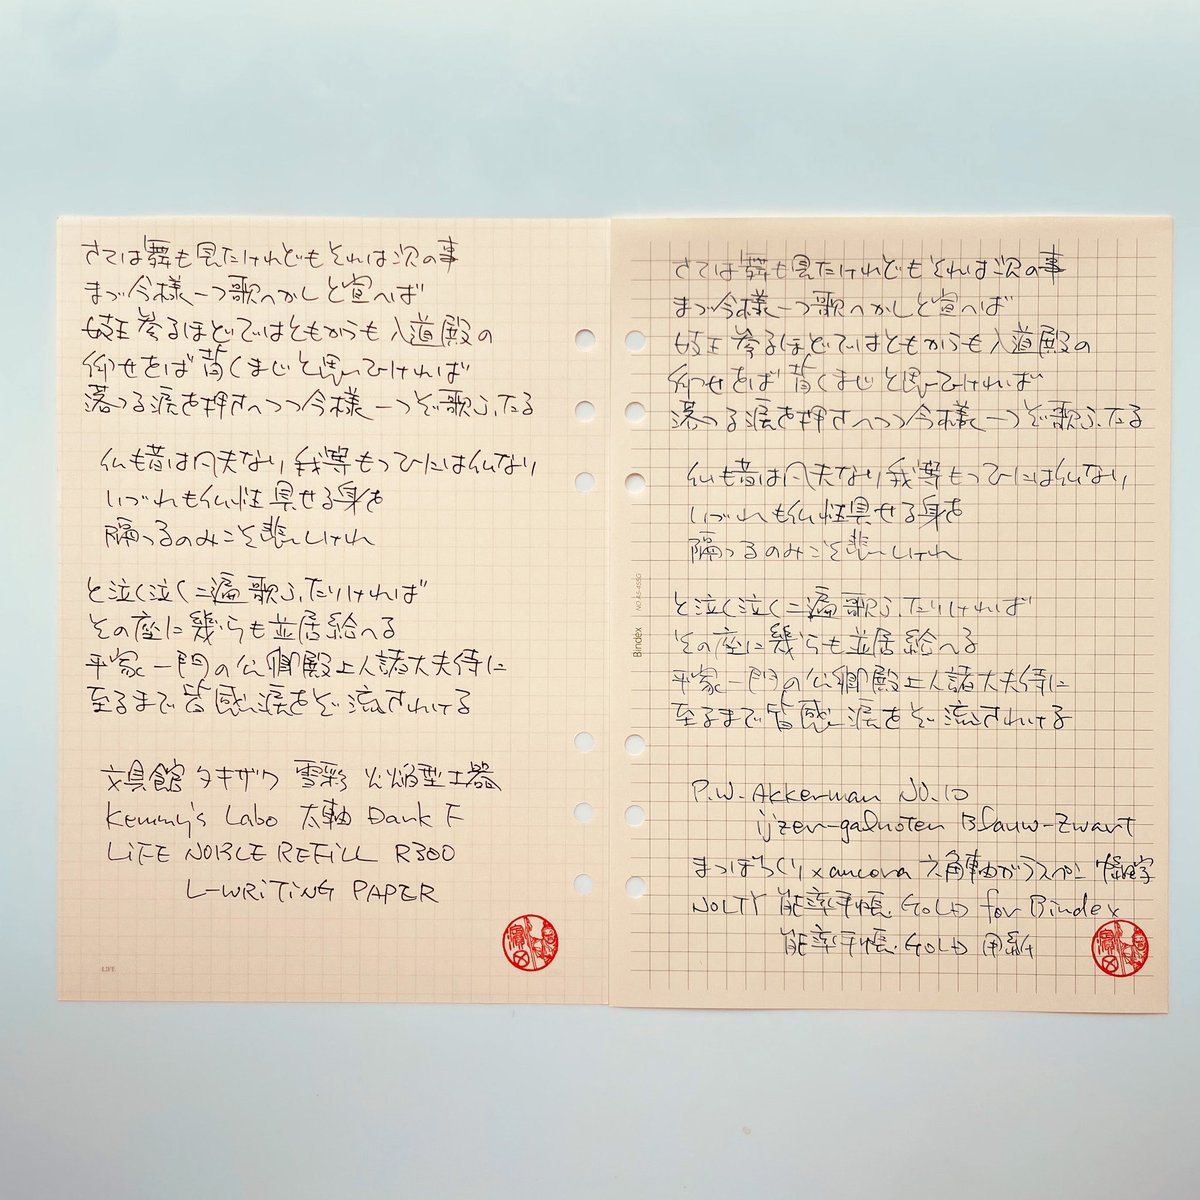 さては舞も見たけれどもそれは次の事
まづ今様一つ歌へかしと宣へば
妓王参るほどではともかうも入道殿の
仰せをば背くまじと思ひければ
落つる涙を押さへつつ今様一つぞ歌ふたる
仏も昔は凡夫なり我等もつひには仏なり
いづれも仏性具せる身を
隔つるのみこそ悲しけれ
と泣く泣く二遍歌ふたりければ
その座に幾らも並居給へる
平家一門の公卿殿上人諸大夫侍に
至るまで皆感涙をぞ流されける
文具館タキザワ 雪彩 火焔型土器
Kemmy's Labo 太軸 Dank F
LiFE NOBLE REFiLL R300
L-WRiTiNG PAPER
LIFE
さては舞も見たけれどもそれは次の事
まづ今様一つ歌へかしと宣へば
妓王参るほどではともかうも入道殿の
仰せをば背くまじと思ひければ
落つる涙を押さへつつ今様一つぞ歌ふたる
仏も昔は凡夫なり我等もつひには仏なり
いづれも仏性具せる身を
隔つるのみこそ悲しけれ
と泣く泣く二遍歌ふたりければ
その座に幾らも並居給へる
平家一門の公卿殿上人諸大夫侍に
至るまで皆感涙をぞ流されける
P.W. Akkerman NO.10
ijzer-galnoten Blauw-Zwart
まつぼっくり×ancora 六角軸ガラスペン 極細字
NOLTY 能率手帳 GOLD for Bindex
能率手帳 GOLD 用紙
Bindex